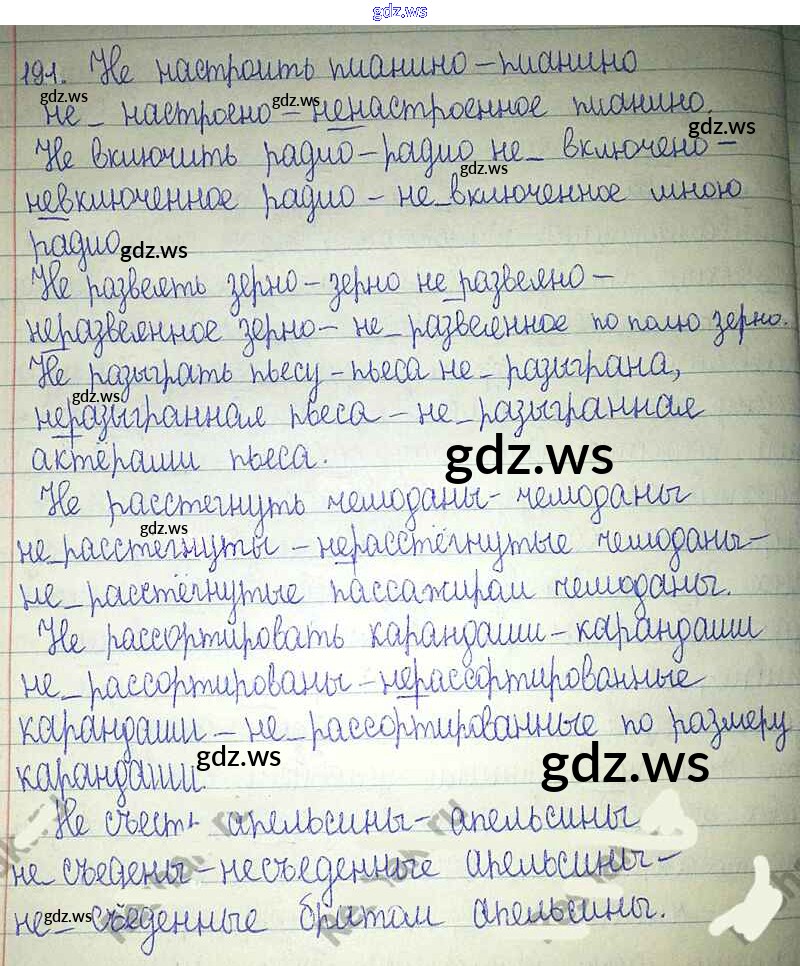 gdz.ws
191. Не настроить пианино – пианино
gdz.ws gdz.ws
не_настроено – ненастроенное пианино.
gdz.ws
Не включить радио – радио не_включено –
gdz.ws
невключенное радио – не_включенное мною
радио gdz.ws
Не развеять зерно – зерно не_развеяно –
неразвеянное зерно – не_развеянное по полю зерно.
Не разыграть пьесу – пьеса не_разыграна,
gdz.ws
неразыгранная пьеса – не_разыгранная
актёрами пьеса.
gdz.ws
Не расстегнуть чемоданы – чемоданы
gdz.ws
не_расстегнуты – нерасстёгнутые чемоданы –
не_расстёгнутые пассажирам чемоданы.
Не рассортировать карандаши – карандаши
не_рассортированы – нерассортированные
карандаши – не_рассортированные по размеру
gdz.ws gdz.ws
карандаши.
Не съесть апельсины – апельсины
не съедены – несъеденные апельсины –
gdz.ws
не_съеденные братом апельсины.